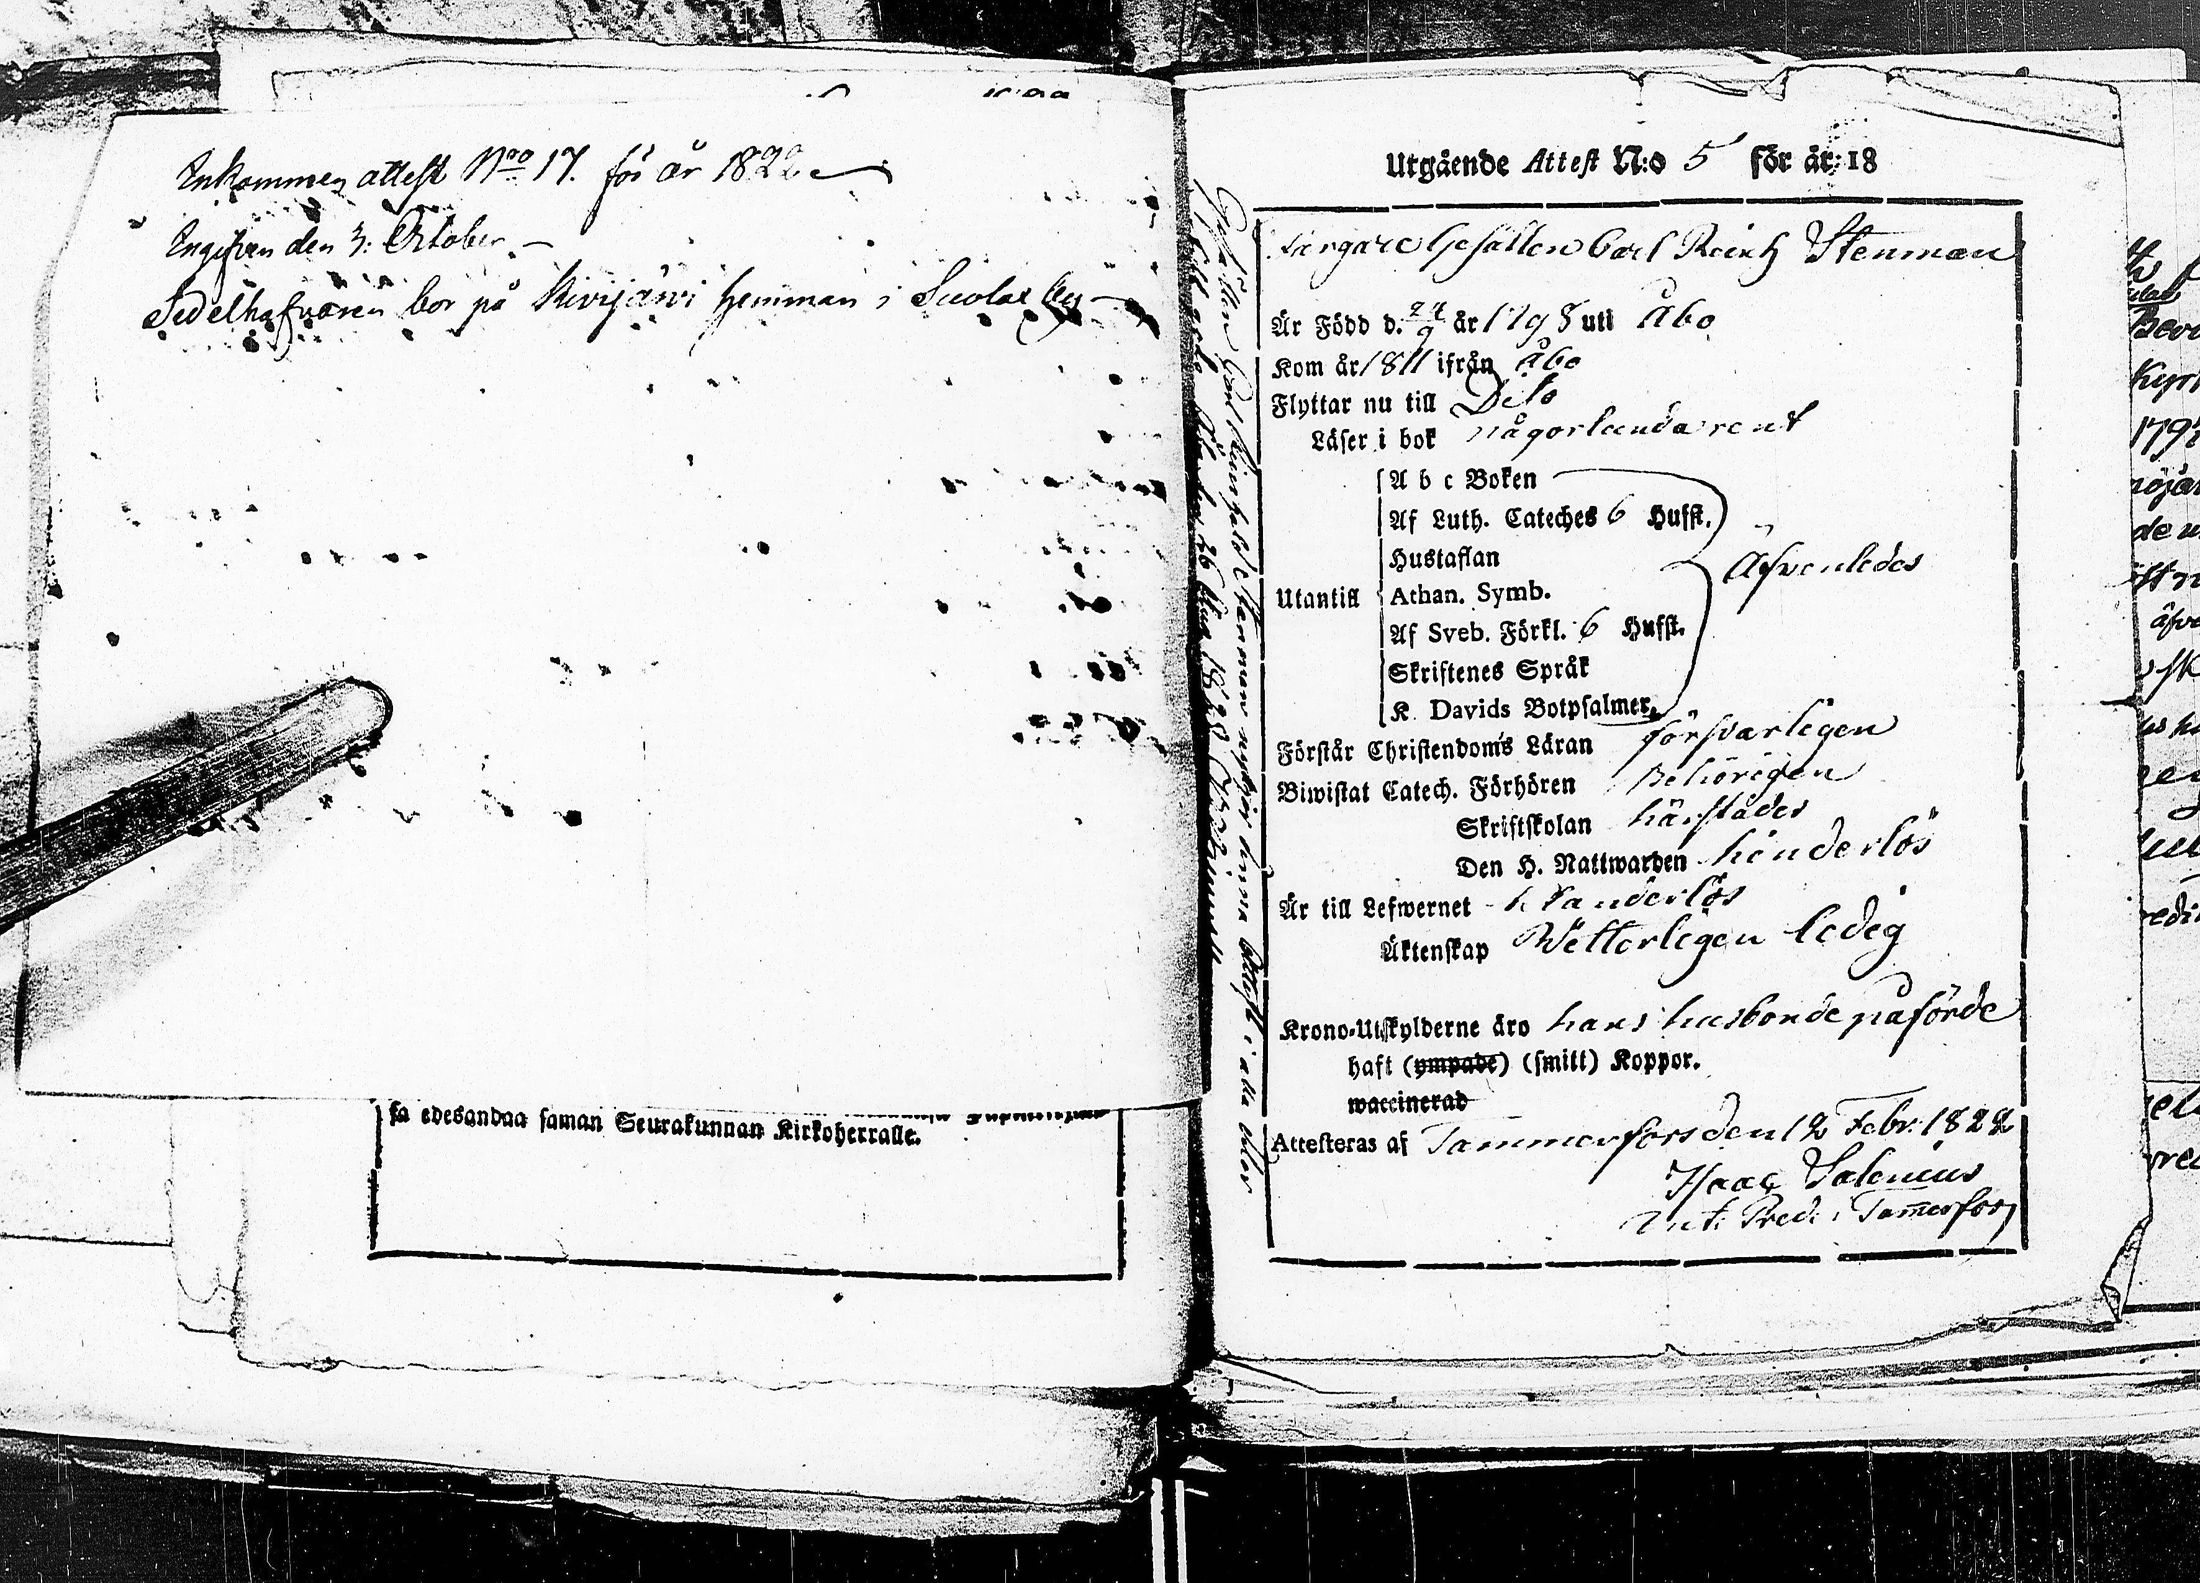 Inkommen attest Nro 17. för år 1822
Ingifven den 3: October
Sedelhafvaren bor på Kivijärvi hemman i
sa edesandaa saman Seurakunnan Kirkoherralle.
Utgående Attest N:o 5 för år 18
Färgare Gesällen Carl Reinh Stenman
Är Född d. 24/9 år 1798 uti Åbo
Kom år 1811 ifrån Åbo
Flyttar nu till Dito
Läser i bok någorlunda rent
Utantill
A b c Boken
Af Luth. Cateches 6 Hufst.
Hustaflan
Athan. Symb.
Af Sveb. Förkl. 6 Hufst.
Skriftenes Språk
K. Davids Botpsalmer.
Äfvenledes
Förstår Christendoms Läran försvarligen
Biwistat Catech. Förhören behörigen
Skriftskolan härstädes
Den H. Nattwarden hinderlös
Är till Lefwernet klanderlös
Äktenskap Wetterligen ledig
Krono-Utskylderne äro hans husbonde påförde
haft (ympade) (smitt) Koppor.
waccinerad
Attesteras af Tammerfors den 12 Febr. 1822
Isaac Salenius
Pred. i Tammerfors
Gesällen Carl Reinhold Stenman denna Attest i alla delar